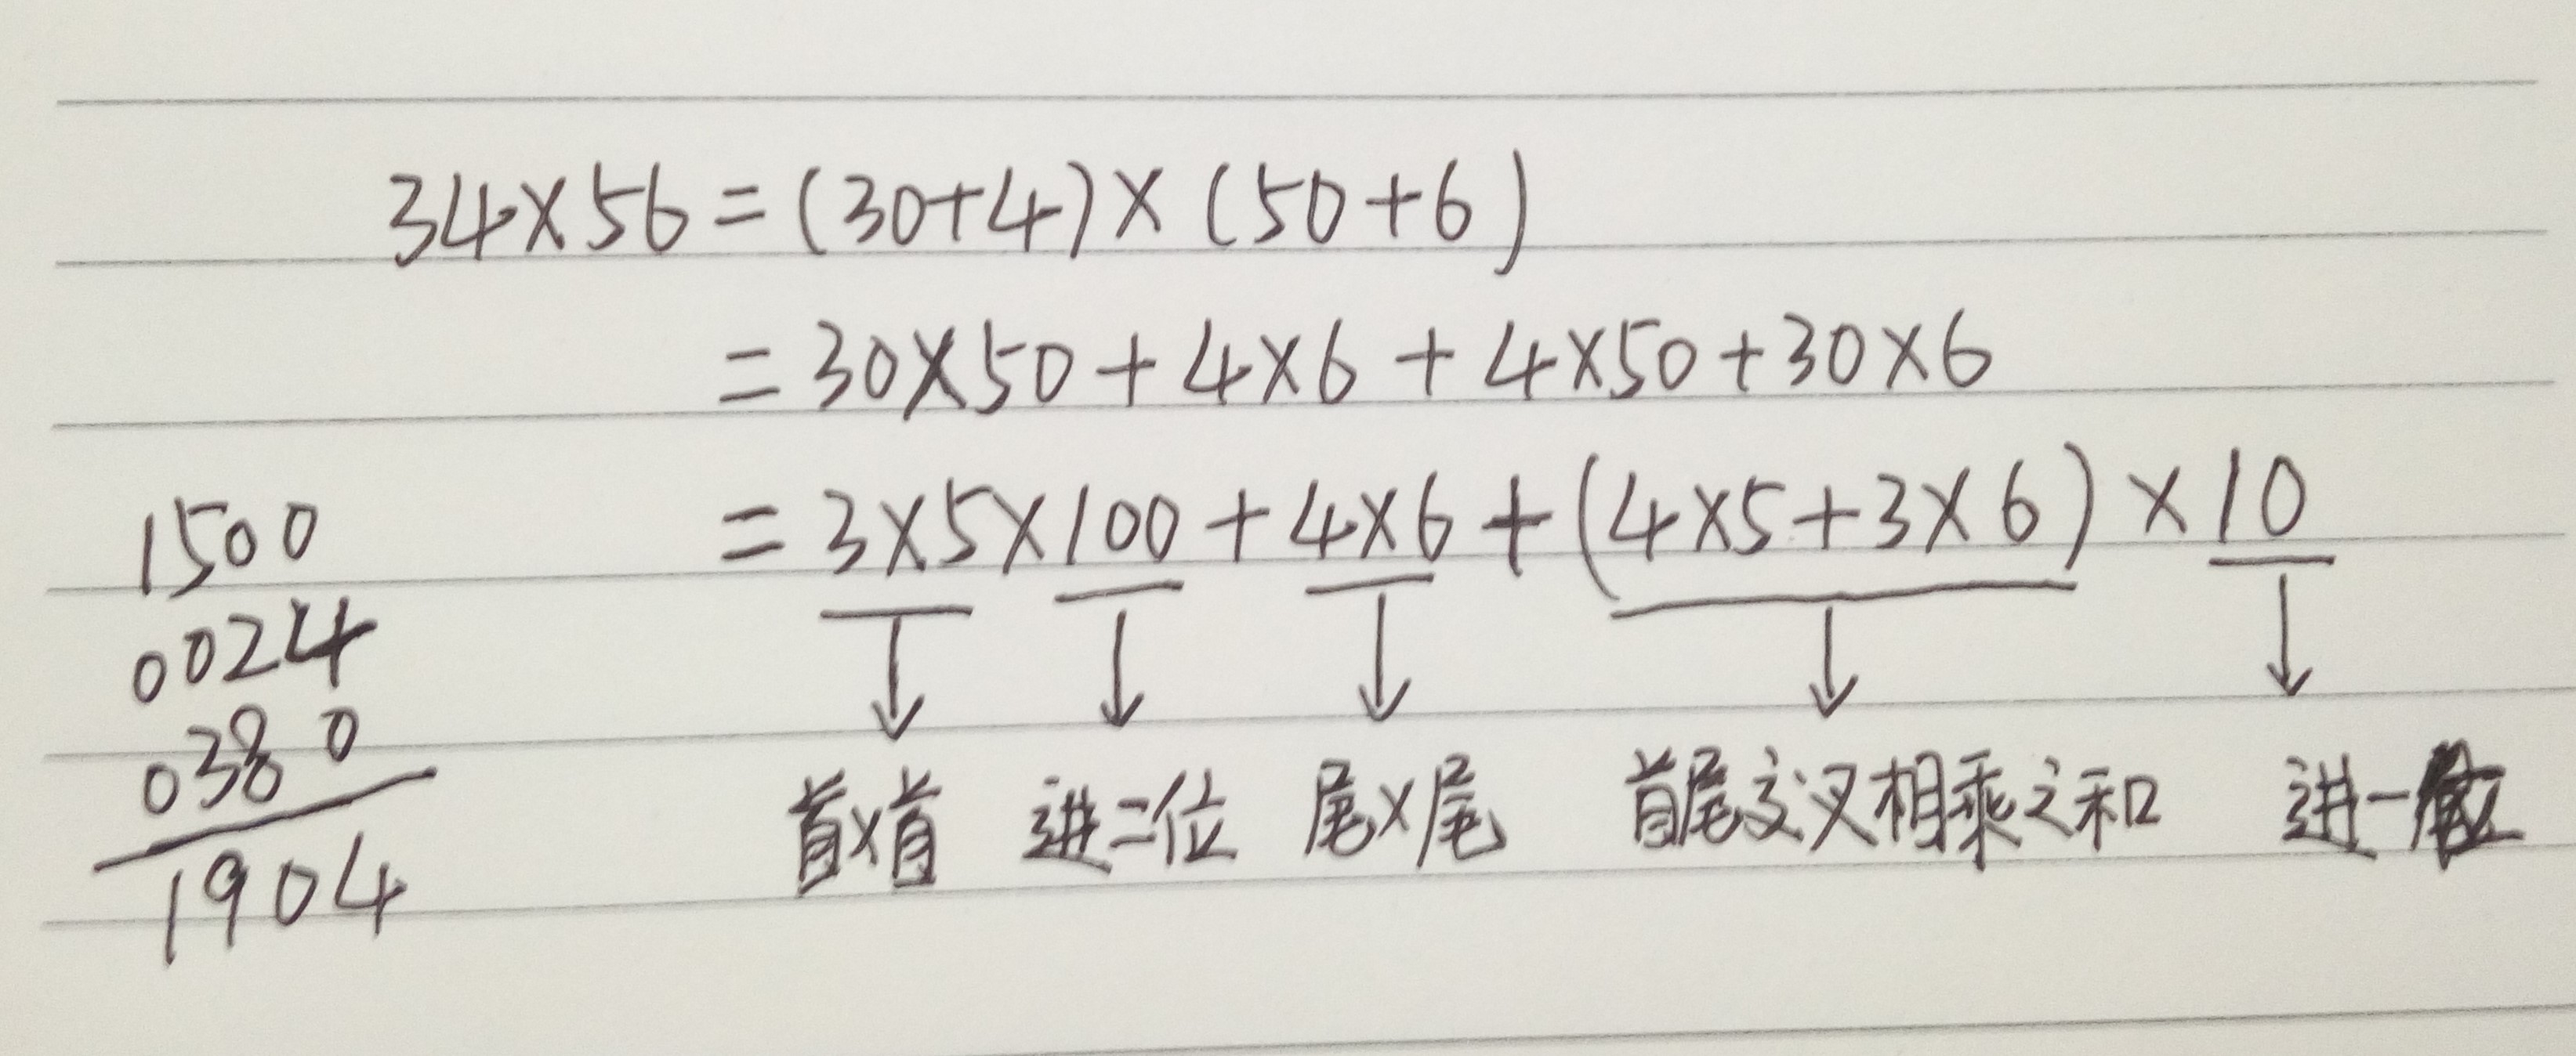 34×56=(30+4)×(50+6)
=30×50+4×6+4×50+30×6
=3×5×100+4×6+(4×5+3×6)×10
首×首 进二位 尾×尾 首尾交叉相乘之和 进一位
1500
0024
0380
1904